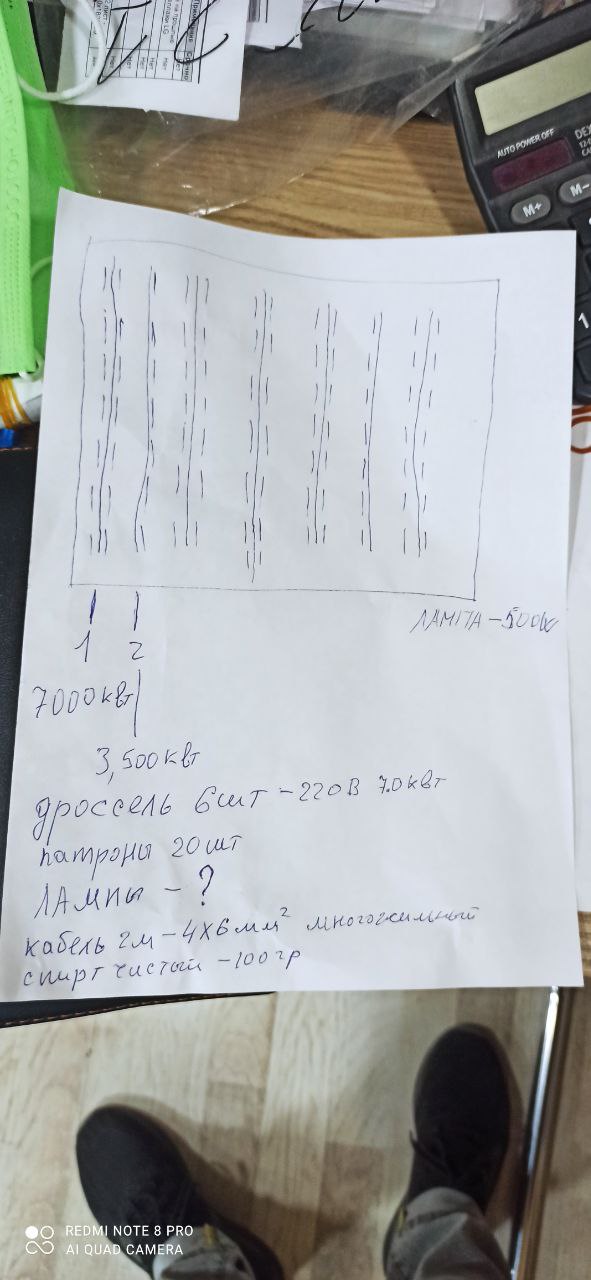 AUTO POWER OFF
M+
M-
1
ЛАМПА - 500W
1 2
7000квт
3,500квт
дроссель 6шт - 220В 7.0квт
патроны 20шт
ЛАМПЫ - ?
кабель 2м - 4х6мм² многожильный
спирт чистый - 100гр
REDMI NOTE 8 PRO
AI QUAD CAMERA